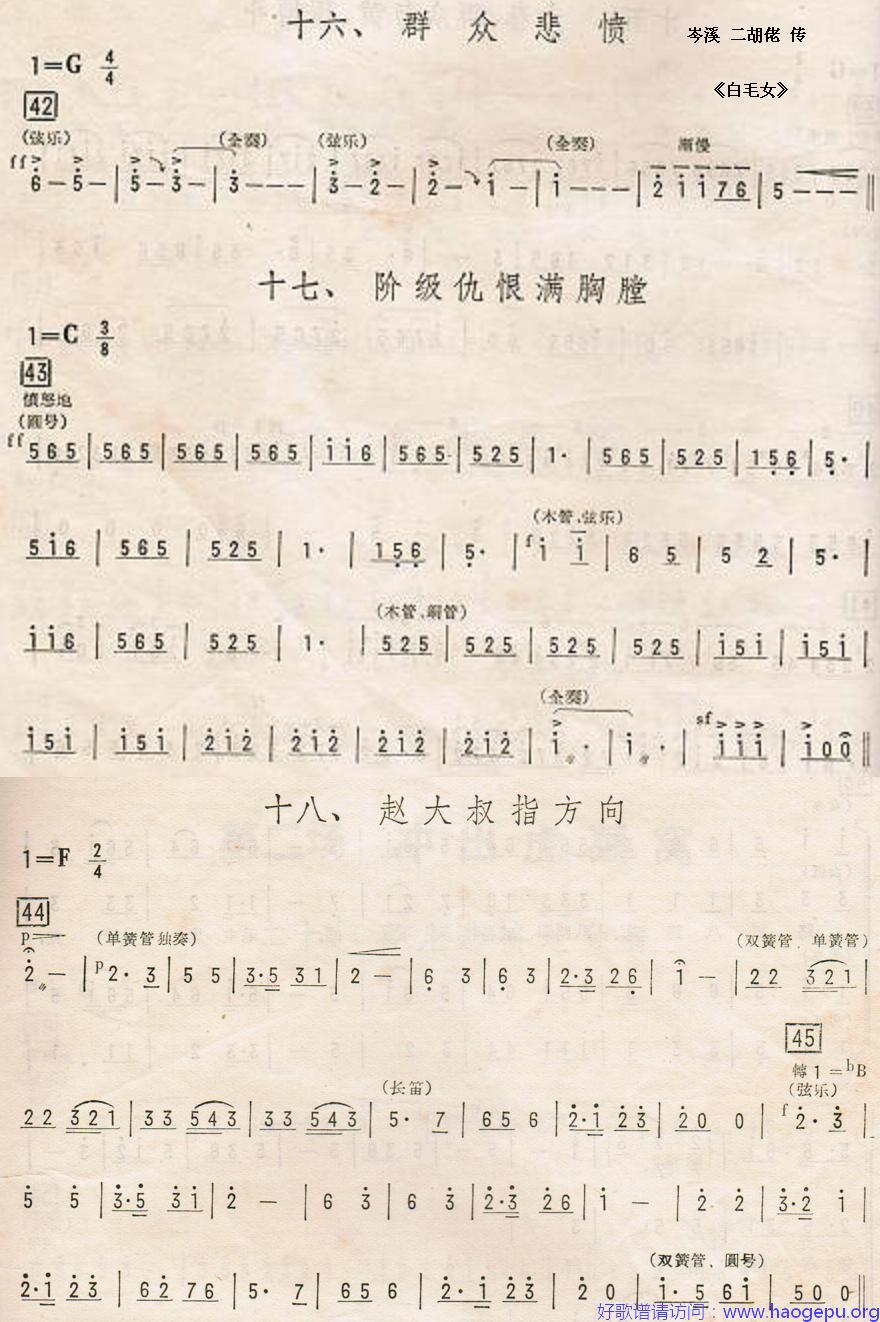 十六、群众悲愤
岑溪 二胡佬 传
《白毛女》
1=G 4/4
42
(弦乐) (全奏) (弦乐) (全奏) 渐慢
ff 6 – 5 – | 5 – 3 – | 3 – – – | 3 – 2 – | 2 – i – | i – – – | 2 i i 7 6 | 5 – – – ‖
十七、阶级仇恨满胸膛
1=C 3/8
43
愤怒地
(圆号)
ff 565 | 565 | 565 | 565 | i i 6 | 565 | 525 | 1· | 565 | 525 | 156 | 5· |
(木管、弦乐)
5i6 | 565 | 525 | 1· | 156 | 5· | f i i | 6 5 | 5 2 | 5· |
(木管、铜管)
i i 6 | 565 | 525 | 1· | 525 | 525 | 525 | 525 | i5i | i5i |
(全奏)
i5i | i5i | 2i2 | 2i2 | 2i2 | 2i2 | i· | i· | sf i i i | i00 ‖
十八、赵大叔指方向
1=F 2/4
44
p (单簧管独奏) (双簧管、单簧管)
2 – | p 2· 3 | 5 5 | 3·5 31 | 2 – | 6 3 | 6 3 | 2·3 26 | 1 – | 22 321 |
45
转1=bB
(长笛) (弦乐)
22 321 | 33 543 | 33 543 | 5· 7 | 65 6 | 2·i 23 | 20 0 | f 2· 3 |
5 5 | 3·5 3i | 2 – | 6 3 | 6 3 | 2·3 26 | i – | 2 2 | 3·2 i |
(双簧管、圆号)
2·i 23 | 62 76 | 5· 7 | 65 6 | 2·i 23 | 2 0 | i·5 6i | 50 0 ‖
好歌谱请访问：www.haogepu.org